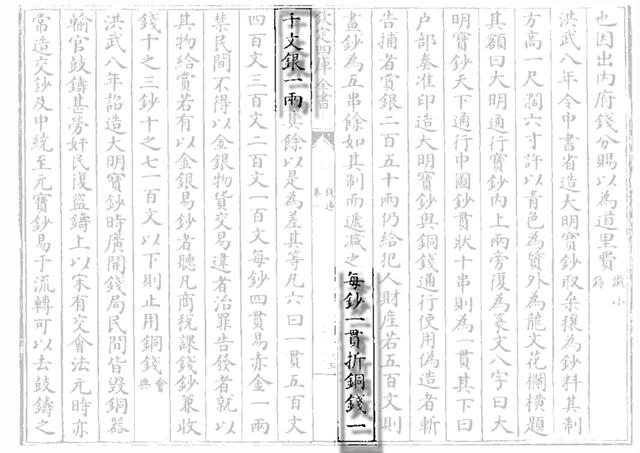 也因出内府錢分賜以為道里費 識小錄
洪武八年令中書省造大明寶鈔取桒穰為鈔料其制
方高一尺濶六寸許以青色為質外為龍文花欄横題
其額曰大明通行寶鈔内上兩旁復為篆文八字曰大
明寶鈔天下通行中圖鈔貫狀十串則為一貫其下曰
户部奏准印造大明寶鈔與銅錢通行使用偽造者斬
告捕者賞銀二百五十兩仍給犯人財産若五百文則
畫鈔為五串餘如其制而遞減之每鈔一貫折銅錢一
欽定四庫全書
錢通
卷
三
千文銀一兩其餘以是為差其等凡六曰一貫五百文
四百文三百文二百文一百文每鈔四貫易赤金一兩
禁民間不得以金銀物貨交易違者治罪告發者就以
其物給賞若有以金銀易鈔者聽凡商税課錢鈔兼收
錢十之三鈔十之七一百文以下則止用銅錢 會典
洪武八年詔造大明寶鈔時廣開錢局民間皆毁銅器
輸官鼓鑄甚勞奸民復盗鑄上以宋有交會法元時亦
常造交鈔及中統至元寶鈔易于流轉可以去鼓鑄之